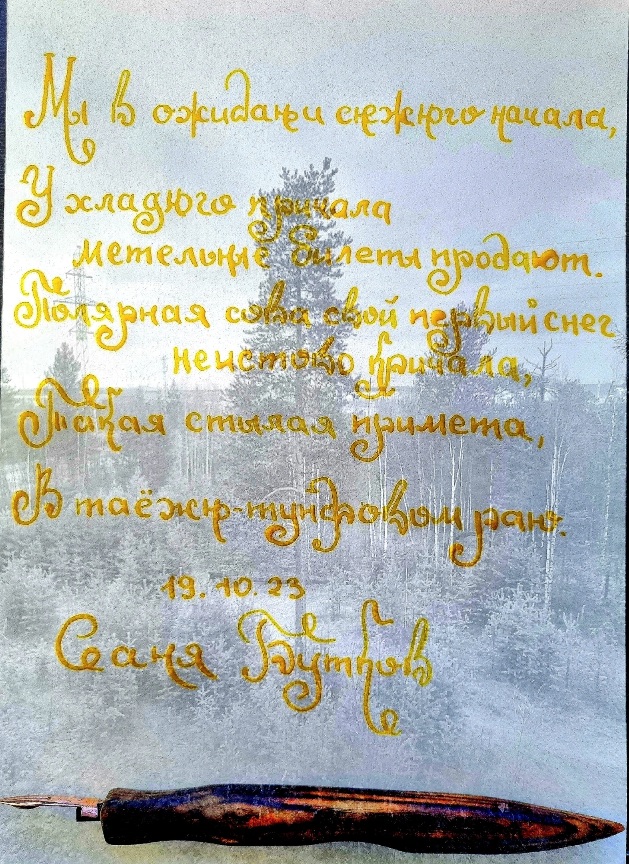 Мы в ожидании снежного начала,
У хладного причала
метельные билеты продают.
Полярная сова свой первый снег
неистово кричала,
Такая стылая примета,
В таёжно-тундровом раю.
19.10.23
Саня Бутков